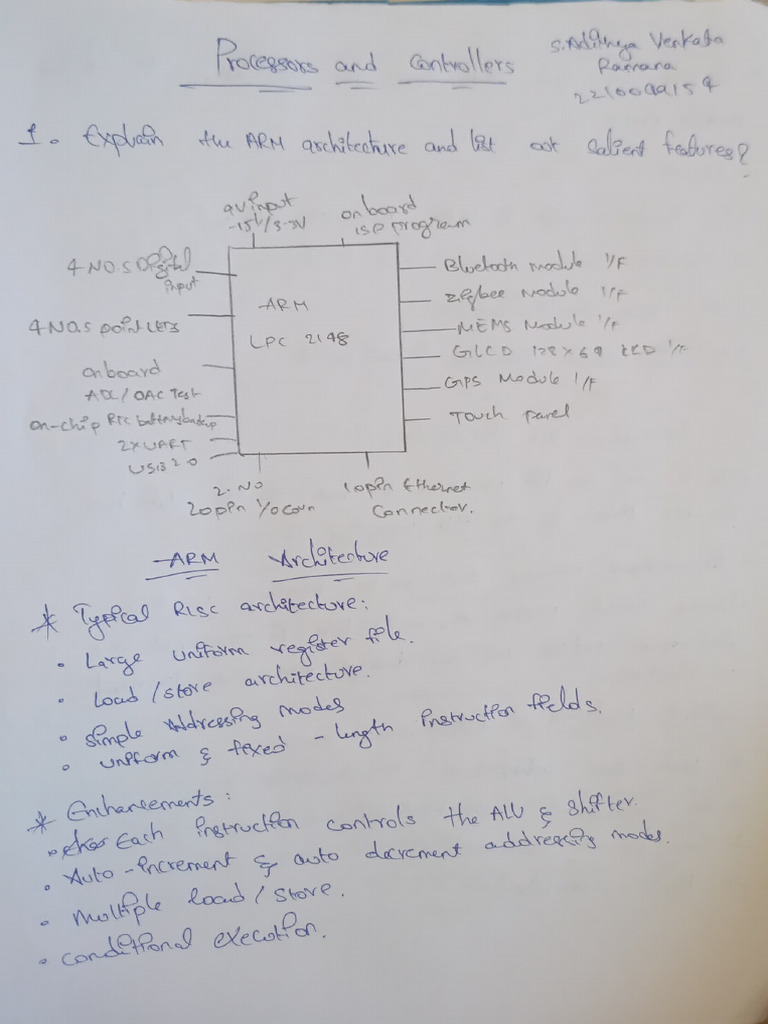 Processors and Controllers
S. Adithya Venkata
Ramana
1. Explain the ARM architecture and list out salient features?
9V input
-15V/3.3V
onboard
ISP program
4 NO.S Digital
input
4 NO.S point LEDS
onboard
ADC/DAC Test
on-chip RTC battery backup
2XUART
USB 2.0
ARM
LPC 2148
Bluetooth module I/F
Zigbee Module I/F
MEMS Module I/F
GLCD 128X64 LCD I/F
GPS Module I/F
Touch panel
2. NO
20pin I/O conn
10pin Ethernet
Connector.
ARM Architecture
* Typical RISC architecture:
• Large uniform register file.
• Load/store architecture.
• Simple Addressing modes
• uniform & fixed - length instruction fields.
* Enhancements:
• Each instruction controls the ALU & shifter.
• Auto-increment & auto decrement addressing modes.
• Multiple load/store.
• conditional execution.